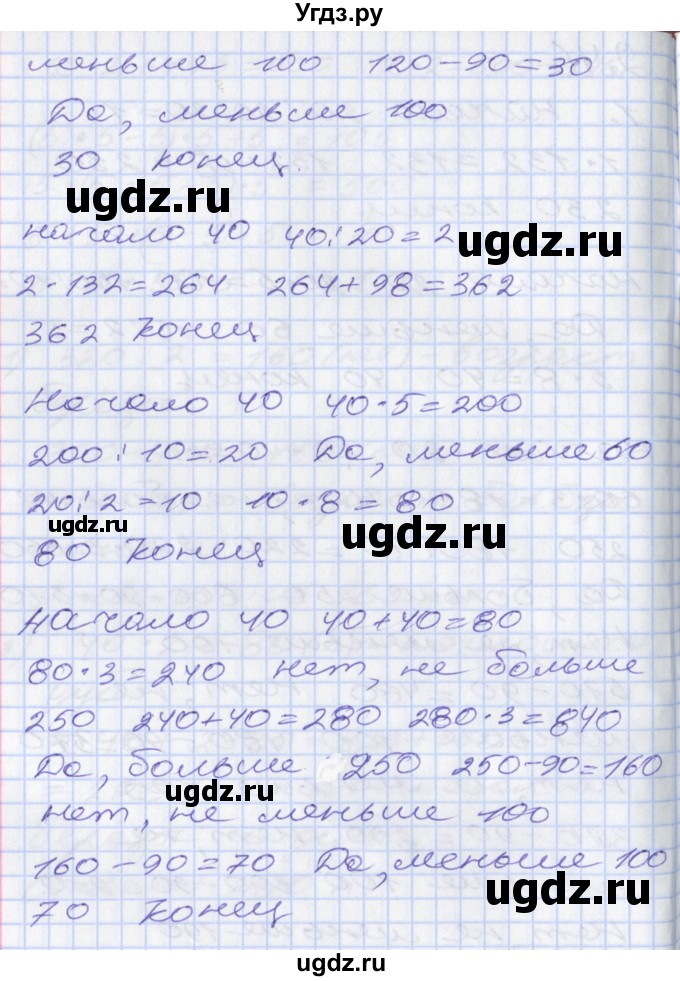 Угдз.ру
меньше 100 120-90=30
Да, меньше 100
30 конец.
ugdz.ru
начало 40 40:20=2
ugdz.ru
2·132=264 264+98=362
362 Конец
Начало 40 40·5=200
200:10=20 Да, меньше 60
20:2=10 10·8=80
ugdz.ru
ugdz.ru
80 Конец
Начало 40 40+40=80
80·3=240 нет, не больше
250 240+40=280 280·3=840
Да, больше 250 250-90=160
ugdz.ru
нет, не меньше 100
160-90=70 Да, меньше 100
ugdz.ru
70 Конец
ugdz.ru